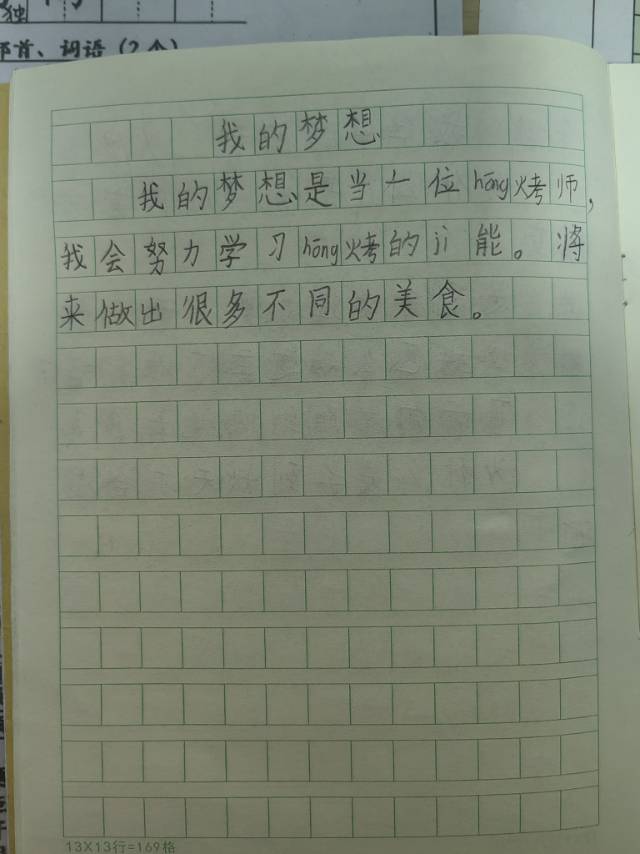 独
部首、词语（2个）
我的梦想
我的梦想是当一位hōng烤师，
我会努力学习hōng烤的jì能。将
来做出很多不同的美食。
13X13行=169格